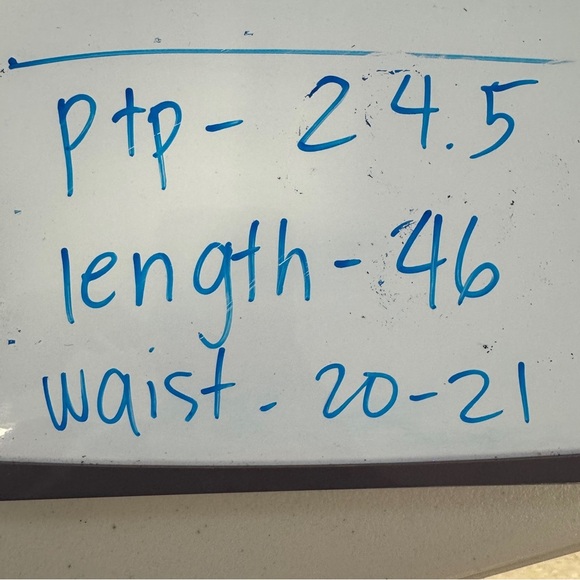 ptp - 24.5
length - 46
waist - 20-21